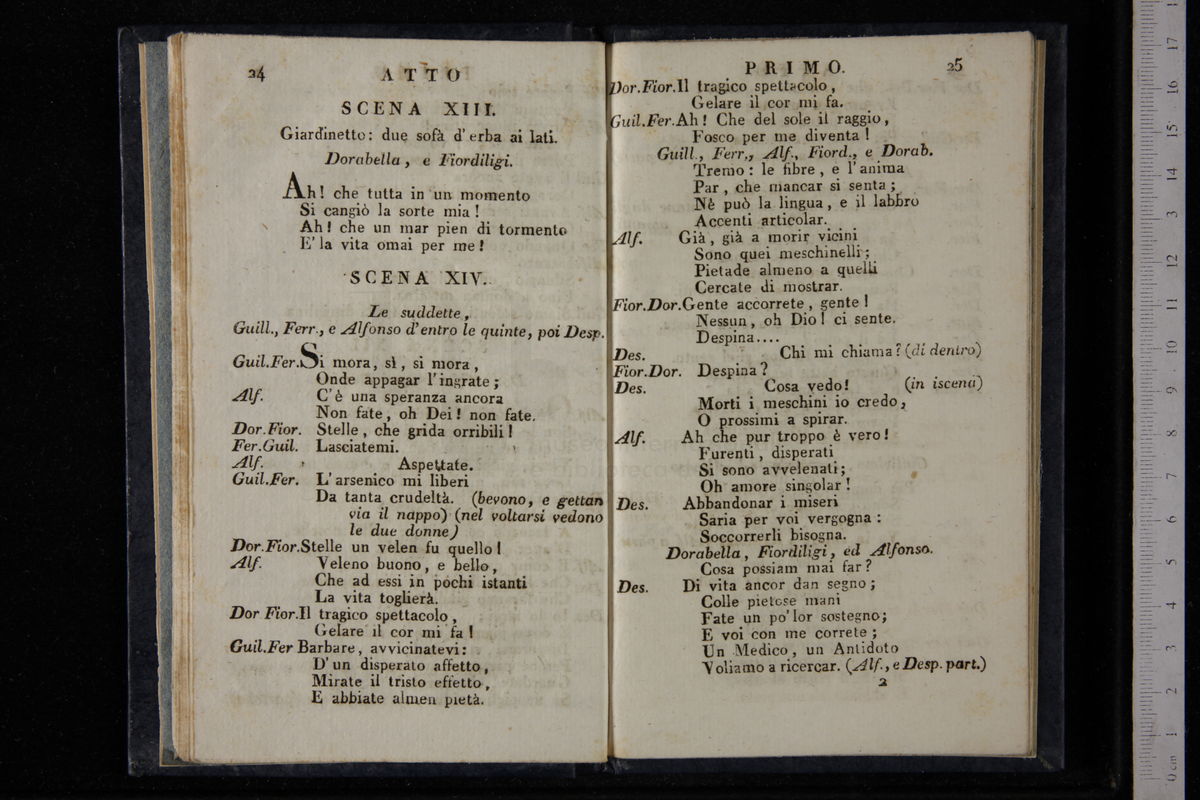 24
ATTO
SCENA XIII.
Giardinetto: due sofà d'erba ai lati.
Dorabella, e Fiordiligi.
Ah! che tutta in un momento
Si cangiò la sorte mia!
Ah! che un mar pien di tormento
E' la vita omai per me!
SCENA XIV.
Le suddette,
Guill., Ferr., e Alfonso d'entro le quinte, poi Desp.
Guil.Fer. Si mora, sì, si mora,
Onde appagar l'ingrate;
Alf. C'è una speranza ancora
Non fate, oh Dei! non fate.
Dor.Fior. Stelle, che grida orribili!
Fer.Guil. Lasciatemi.
Alf. Aspettate.
Guil.Fer. L'arsenico mi liberi
Da tanta crudeltà. (bevono, e gettan
via il nappo) (nel voltarsi vedono
le due donne)
Dor.Fior. Stelle un velen fu quello!
Alf. Veleno buono, e bello,
Che ad essi in pochi istanti
La vita toglierà.
Dor Fior. Il tragico spettacolo,
Gelare il cor mi fa!
Guil.Fer Barbare, avvicinatevi:
D'un disperato affetto,
Mirate il tristo effetto,
E abbiate almen pietà.
PRIMO.
25
Dor.Fior. Il tragico spettacolo,
Gelare il cor mi fa.
Guil.Fer. Ah! Che del sole il raggio,
Fosco per me diventa!
Guill., Ferr., Alf., Fiord., e Dorab.
Tremo: le fibre, e l'anima
Par, che mancar si senta;
Nè può la lingua, e il labbro
Accenti articolar.
Alf. Già, già a morir vicini
Sono quei meschinelli;
Pietade almeno a quelli
Cercate di mostrar.
Fior.Dor. Gente accorrete, gente!
Nessun, oh Dio! ci sente.
Despina....
Des. Chi mi chiama? (di dentro)
Fior.Dor. Despina?
Des. Cosa vedo! (in iscena)
Morti i meschini io credo,
O prossimi a spirar.
Alf. Ah che pur troppo è vero!
Furenti, disperati
Si sono avvelenati;
Oh amore singolar!
Des. Abbandonar i miseri
Saria per voi vergogna:
Soccorrerli bisogna.
Dorabella, Fiordiligi, ed Alfonso.
Cosa possiam mai far?
Des. Di vita ancor dan segno;
Colle pietose mani
Fate un po' lor sostegno;
E voi con me correte;
Un Medico, un Antidoto
Voliamo a ricercar. (Alf., e Desp. part.)
2
0 cm 1 2 3 4 5 6 7 8 9 10 11 12 13 14 15 16 17